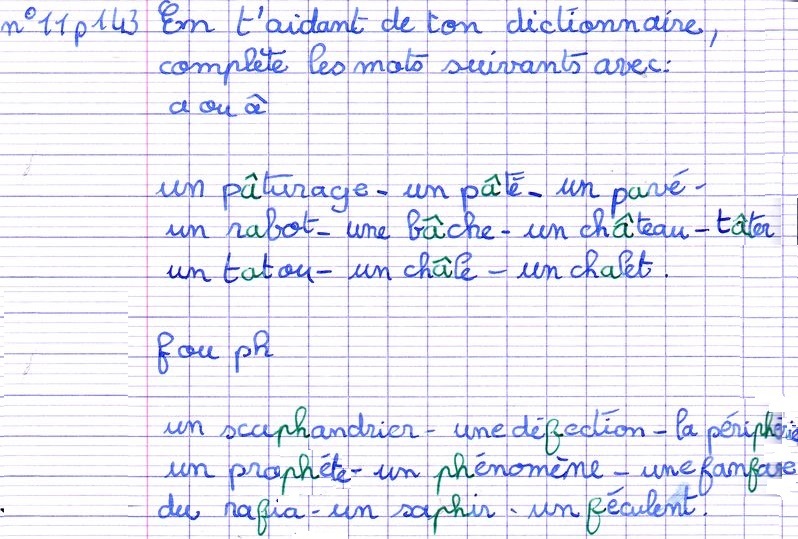 n°11 p 143 En t'aidant de ton dictionnaire,
complète les mots suivants avec:
a ou â
un pâturage - un pâté - un pavé -
un rabot - une bâche - un château - tâter
un tatou - un châle - un chalet.
f ou ph
un scaphandrier - une défection - la périphérie
un prophéte - un phénomène - une fanfare
du rafia - un saphir - un féculent.